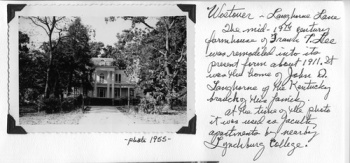 "Westover" - Langhorne Lane
The mid-19th century
farmhouse of Frank T. Lee
was remodeled into its
present form about 1911. It
was the home of John D.
Langhorne of the Kentucky
branch of this family.
At the time of the photo
it was used as faculty
apartments by nearby
Lynchburg College.
-photo 1955-